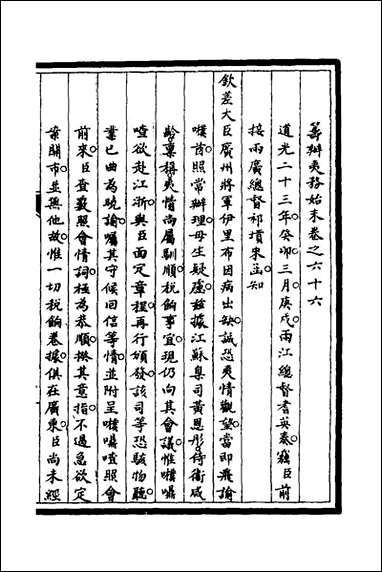 籌辦夷務始末卷之六十六
道光二十三年癸卯三月庚戌兩江總督耆英奏竊臣前
接兩廣總督祁𡎴來函知
欽差大臣廣州將軍伊里布因病出缺誠恐夷情觀望當即飛諭
㗆酋照常辦理毋生疑慮茲據江蘇臬司黃恩彤侍衛咸
齡稟稱夷情尚屬馴順稅餉事宜現仍向其會議惟㗆囒
喳欲赴江浙與臣面定章程再行頒發該司等恐駭物聽
業已曲為曉諭囑其守候回信等情並附呈㗆囒喳照會
前來臣查覈照會情詞極為恭順揆其意指不過急欲定
案開市並無他故惟一切稅餉卷據俱在廣東臣尚未經